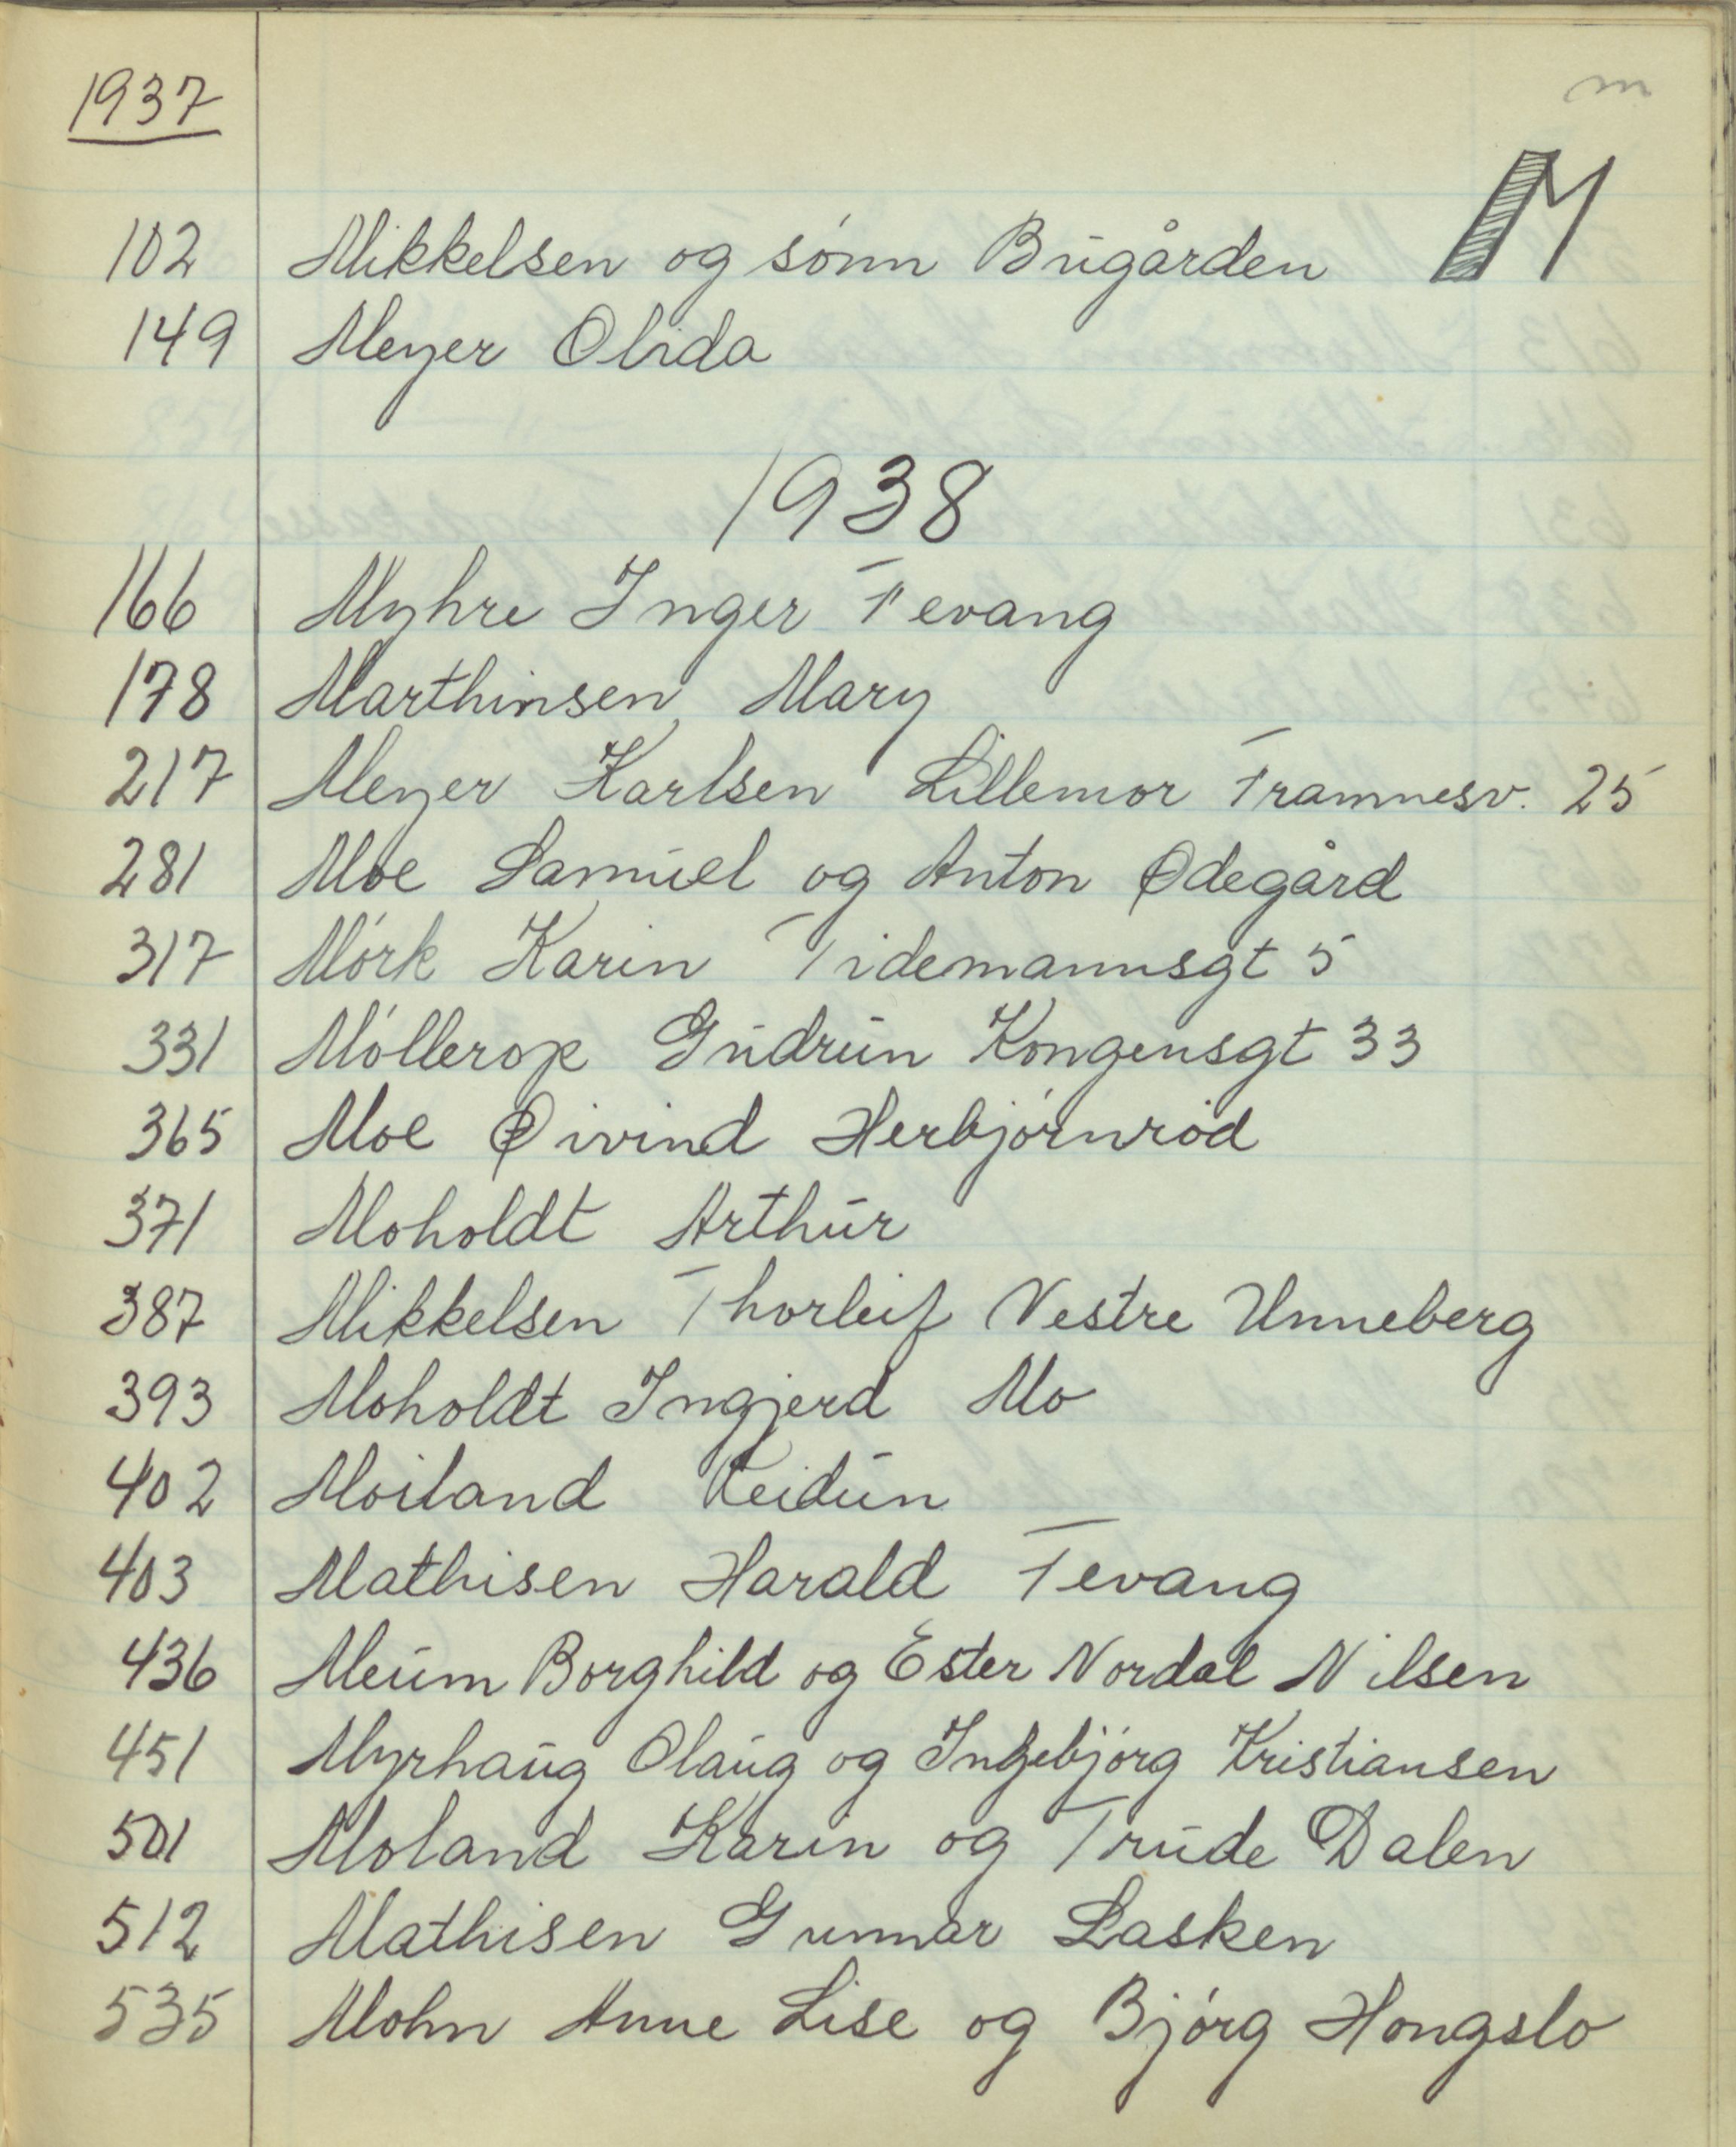 1937
m
M
102 Mikkelsen og sønn Bugården
149 Meyer Olida
1938
166 Myhre Inger Fevang
178 Marthinsen Mary
217 Meyer Karlsen Lillemor Framnesv. 25
281 Moe Samuel og Anton Ødegård
317 Mørk Karin Tidemannsgt 5
331 Møllerop Gudrun Kongensgt 33
365 Moe Øivind Herbjørnrød
371 Moholdt Arthur
387 Mikkelsen Thorleif Vestre Unneberg
393 Moholdt Ingjerd Mo
402 Moiland Reidun
403 Mathisen Harald Fevang
436 Meum Borghild og Ester Nordal Nilsen
451 Myrhaug Olaug og Ingebjørg Kristiansen
501 Moland Karin og Trude Dalen
512 Mathisen Gunnar Lasken
535 Mohn Anne Lise og Bjørg Hongslo